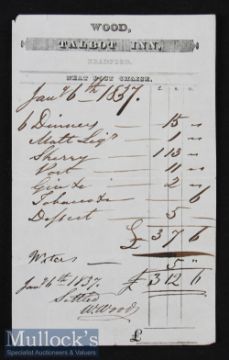 WOOD,
TALBOT INN,
BRADFORD.
NEAT POST CHAISE.
Jany 6th 1837.
6 Dinners — 15 "
Malt Liqr — 1 "
Sherry — 1 13 "
Port — 11 "
Gin &c — 2 "
Tobacco &c — 6
Dessert — 5
£ 3 7 6
5 "
Jany 6th 1837. £ 3 12 6
Settled
W. Wood
£
Mullock's
Specialist Auctioneers & Valuers